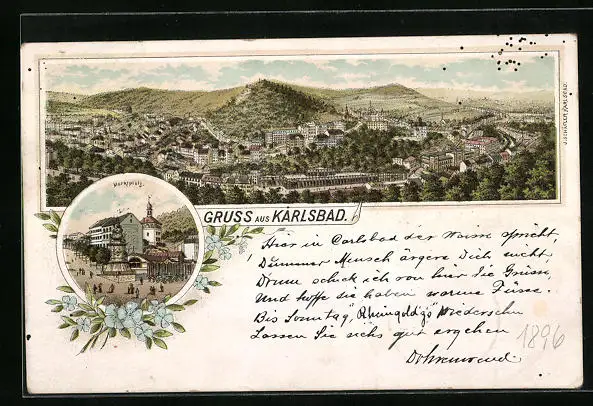 J. SCHÄFLER, KARLSBAD.
Marktplatz.
GRUSS AUS KARLSBAD.
Hier in Carlsbad der Weise spricht,
Dummer Mensch ärgere Dich nicht
Drum schick ich von hier die Grüsse,
Und hoffe sie haben warme Füsse.
Bis Sonntag, "Rheingold's" Wiedersehn
Lassen Sie sichs gut ergehen
Dohrenwend.
1896